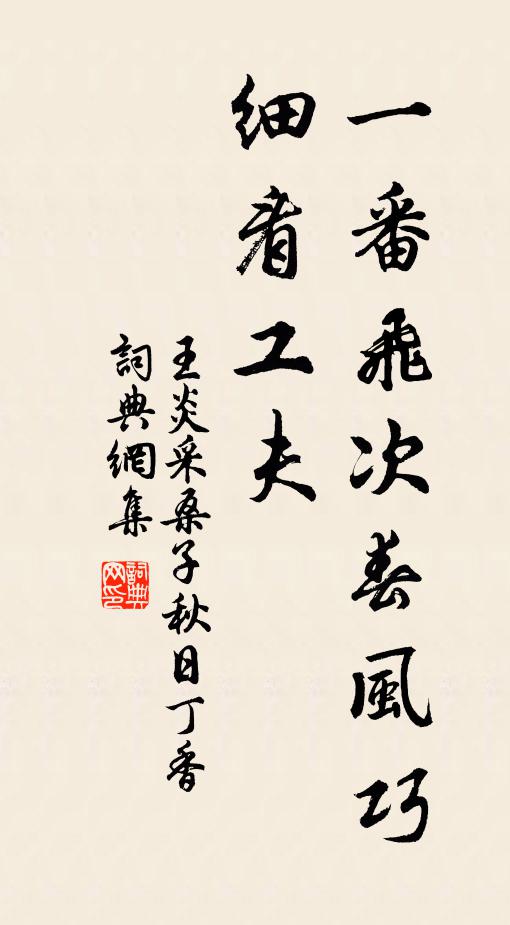 一番飛次春風巧
細看工夫
王炎采桑子秋日丁香
詞典網集
詞典网印